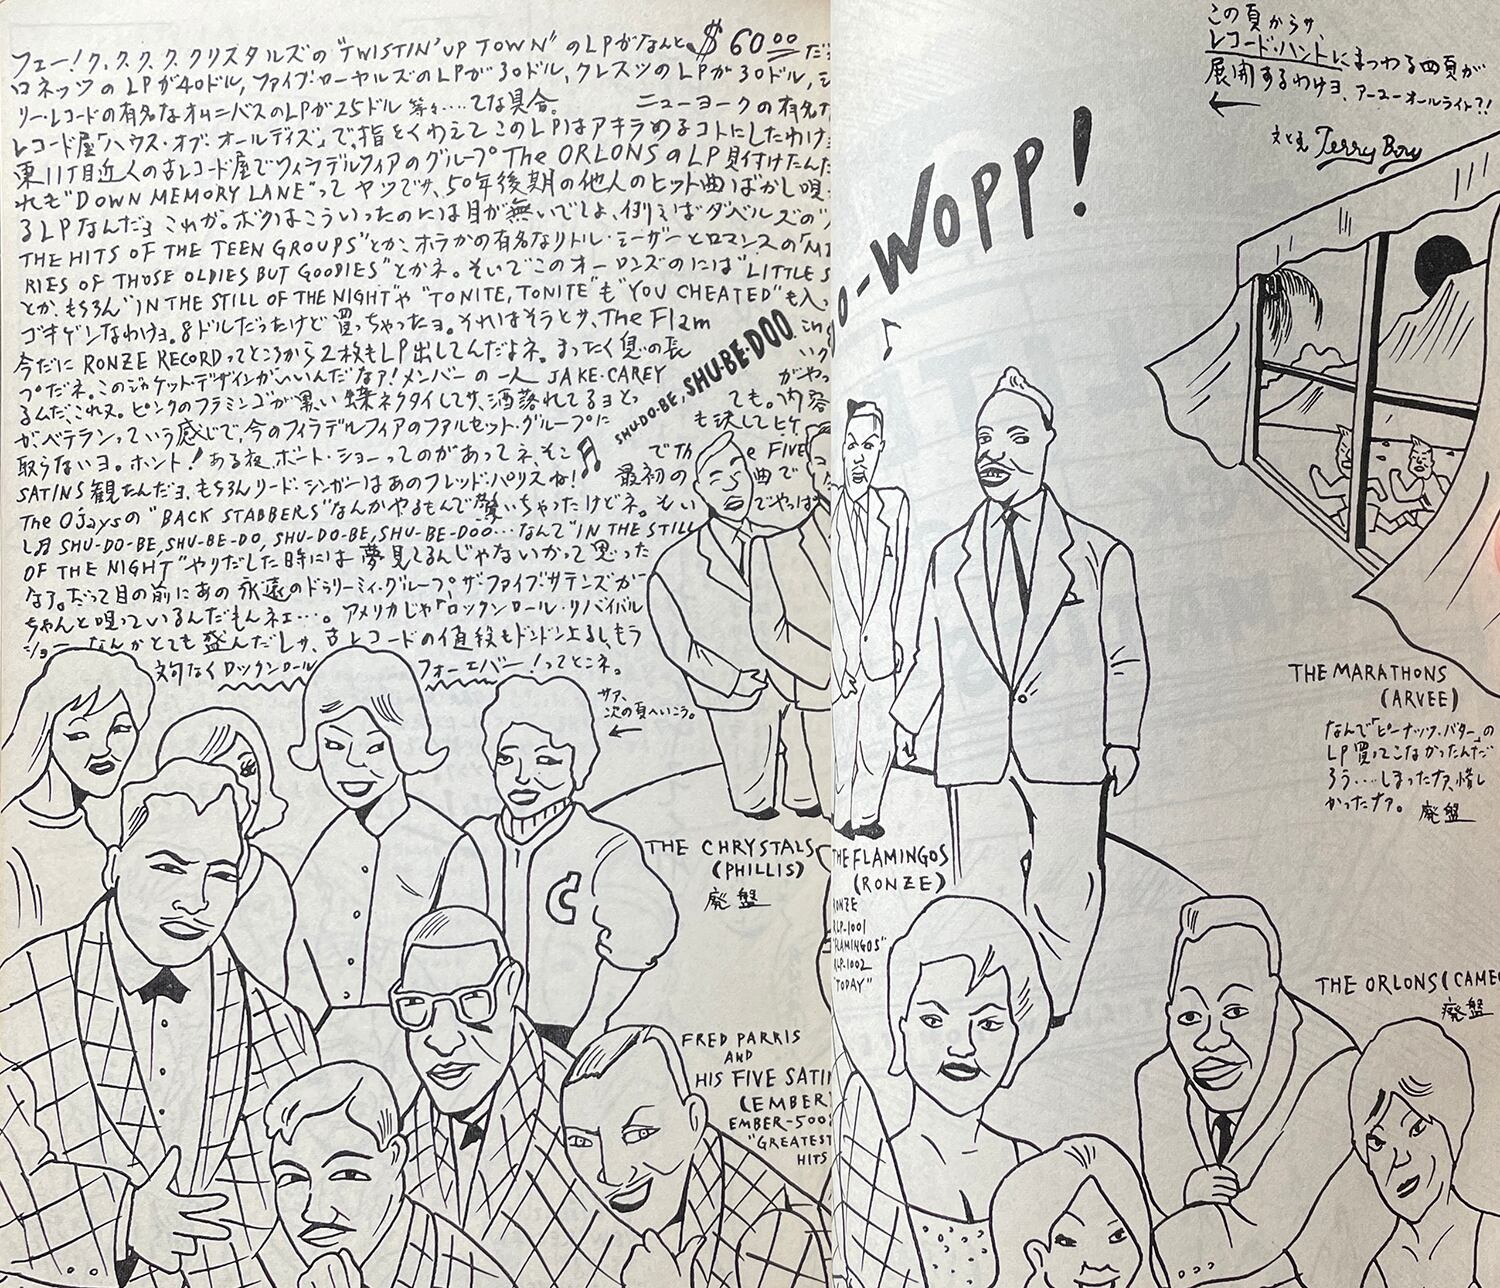 フェー!ク、ク、ク、ク、クリスタルズの"TWISTIN' UP TOWN"のLPがなんと$60.00だ
ロネッツのLPが40ドル,ファイブ・ローヤルズのLPが30ドル,クレスツのLPが30ドル,
リー・レコードの有名なオムニバスのLPが25ドル等々……てな具合。 ニューヨークの有名な
レコード屋「ハウス・オブ・オールディズ」で、指をくわえてこのLPはアキラめるコトにしたわけ
東11丁目近くの古レコード屋でフィラデルフィアのグループ The ORLONSのLP見付けたんだ
れも"DOWN MEMORY LANE"ってヤツでサ、50年後期の他人のヒット曲ばかし唄
るLPなんだヨこれが。ボクはこういったのには目が無いでしょ、例えばダベルズの"
THE HITS OF THE TEEN GROUPS"とか、ホラかの有名なリトル・シーザーとロマンスの「ME
RIES OF THOSE OLDIES BUT GOODIES"とかネ。そいでこのオーロンズのには"LITTLE S
とか、もちろん"IN THE STILL OF THE NIGHT"や"TONITE, TONITE"も"YOU CHEATED"も入っ
ゴキゲンなわけヨ。8ドルだったけど買っちゃったヨ。それはそうとサ、The Flam
今だに RONZE RECORDってところから2枚もLP出してんだよネ。まったく息の長
つだネ。このジャケット・デザインがいいんだなァ!メンバーの一人 JAKE・CAREY
るんだ、これヌ。ピンクのフラミンゴが黒い蝶ネクタイしてサ、洒落れてるヨとっ
ても。内容
が、ベテランっていう感じで、今のフィラデルフィアのファルセット・グループに
も決してヒケ
取らないヨ。ホント!ある夜、ボート・ショーってのがあってネ、そこ
でTh e FIVE
SATINS観たんだヨ、もちろんリード・シンガーはあのフレッド・パリスね!
最初の 曲で
The Ojaysの"BACK STABBERS"なんかやるもんで驚いちゃったけどネ。もい
でやっぱ
し♫ SHU-DO-BE, SHU-BE-DO, SHU-DO-BE, SHU-BE-DOO…なんて"IN THE STILL
OF THE NIGHT"やりだした時には夢見てるんじゃないかって思った
なァ。だって目の前にあの永遠のドゥリーミィ・グループ、ザ・ファイブ・サテンズが
ちゃんと唄っているんだもんネェ…。アメリカじゃ「ロックンロール・リバイバル
ショー」なんかとても盛んだしサ、古レコードの値段もドンドン上るし、もう
文句なくロックンロール フォーエバー!ってとこネ。
サァ、
次の頁へいこう。
←
SHU-DO-BE, SHU-BE-DOO
THE CHRYSTALS
(PHILLIS)
廃盤
FRED PARRIS
AND
HIS FIVE SATIN
(EMBER)
EMBER-500
"GREATEST
HITS
この頁からサ、
レコード・ハントにまつわる四頁が
展開するわけヨ、アーユーオールライト?!
←
えと文 Terry Bow
O-WOPP!
THE MARATHONS
(ARVEE)
なんで「ピーナッツ・バター」の
LP買ってこなかったんだ
ろう…‥しまったナァ、惜し
かったナァ。 廃盤
THE FLAMINGOS
(RONZE)
RONZE
RLP-1001
"FLAMINGOS"
RLP-1002
"TODAY"
THE ORLONS (CAMEO
廃盤
C